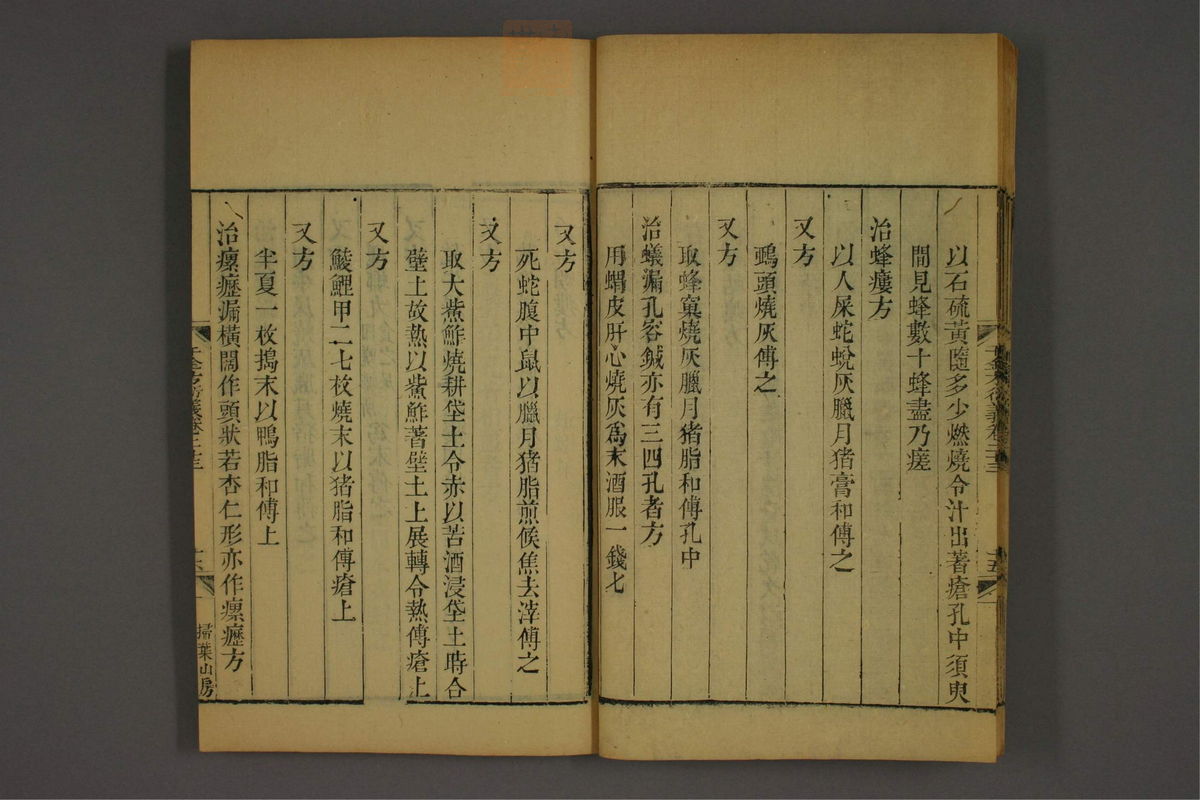 以石硫黃隨多少燃燒令汁出著瘡孔中須臾
間見蜂數十蜂盡乃瘥
治蜂瘻方
以人屎蛇蛻灰臘月猪膏和傅之
又方
鴟頭燒灰傅之
又方
取蜂窠燒灰臘月猪脂和傅孔中
治蟻漏孔容鍼亦有三四孔者方
用蝟皮肝心燒灰爲末酒服一錢七
又方
死蛇腹中鼠以臘月猪脂煎候焦去滓傅之
又方
取大鮝鮓燒耕垡土令赤以苦酒浸垡土時合
壁土故熱以鮝鮓著壁土上展轉令熱傅瘡上
又方
鯪鯉甲二七枚燒末以猪脂和傅瘡上
又方
半夏一枚搗末以鴨脂和傅上
治瘰癧漏橫闊作頭狀若杏仁形亦作瘰癧方
掃葉山房